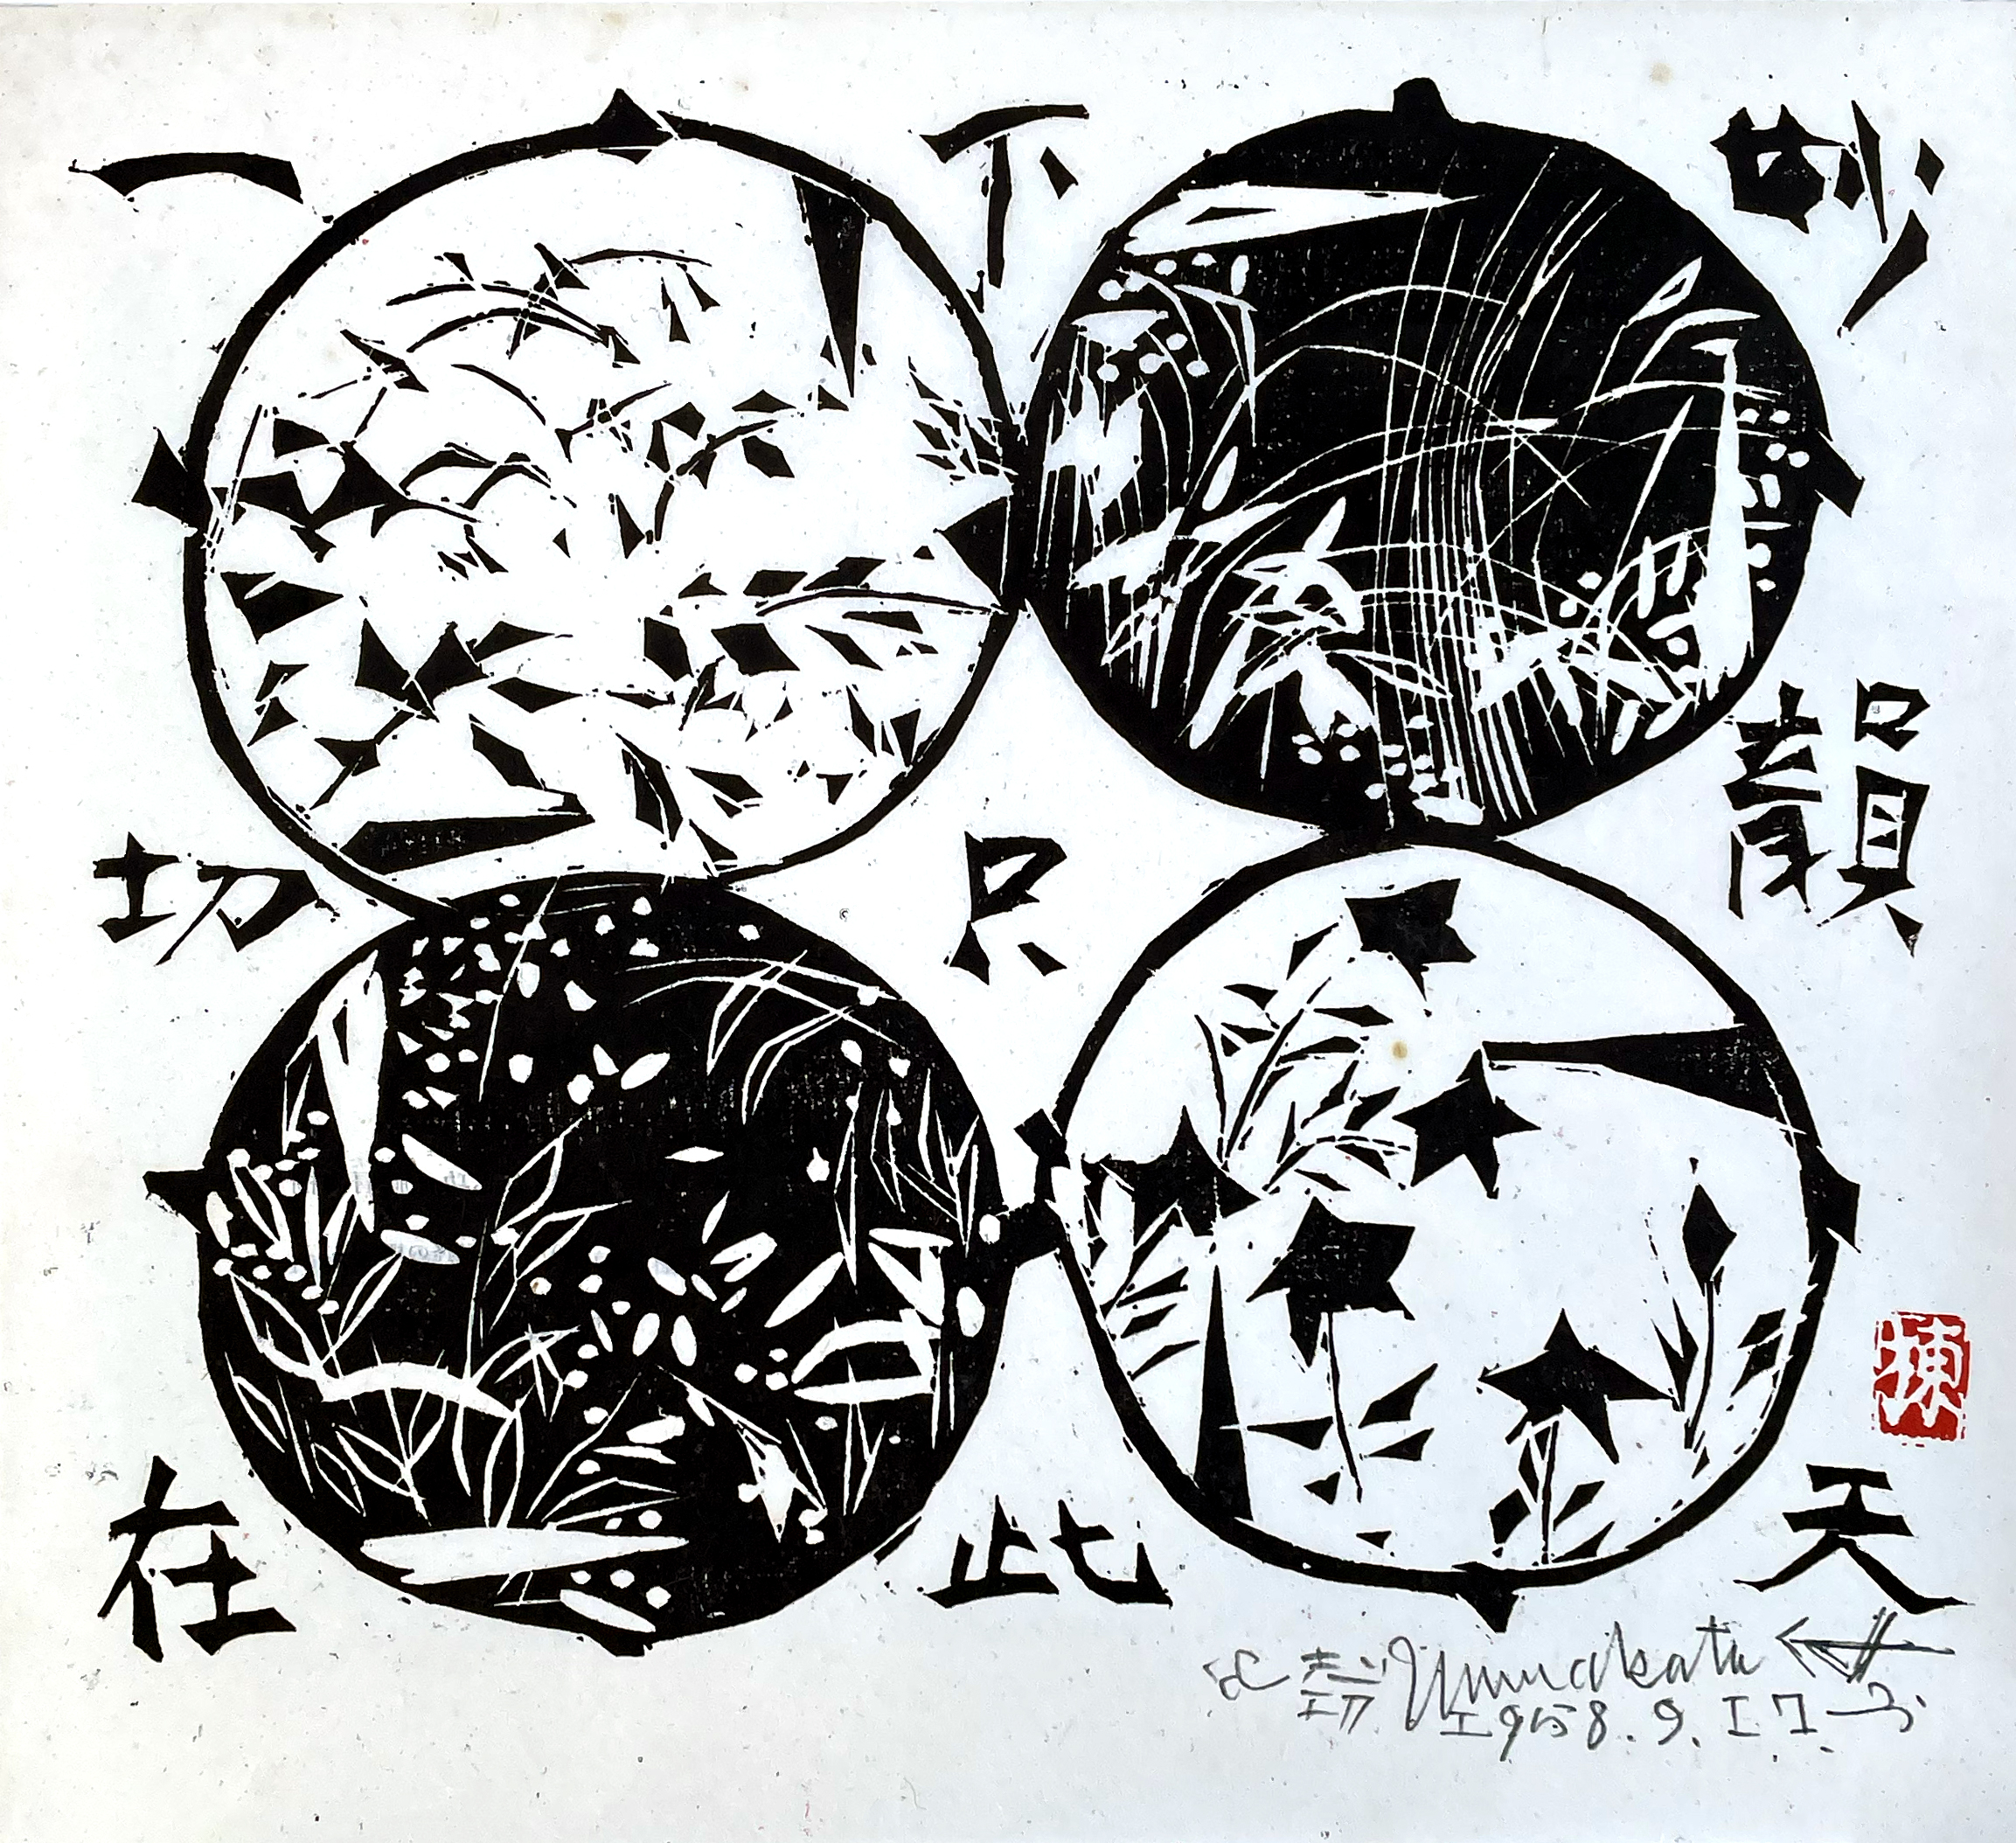 妙韻天
下只此
一切在
棟
志功 Munakata
1958.9.17